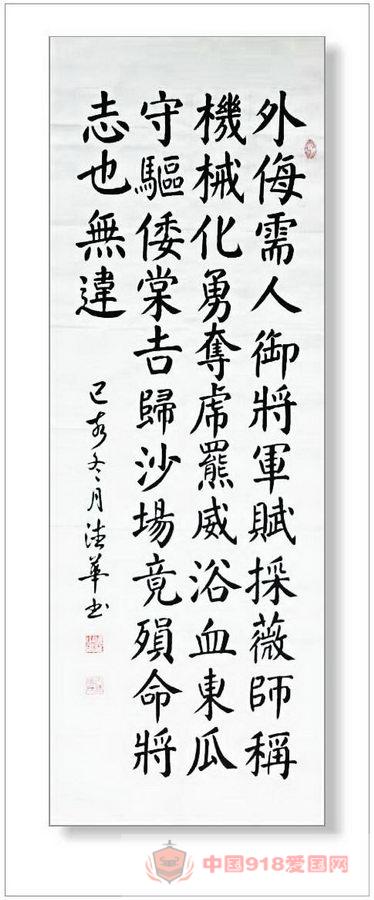 外侮需人御將軍賦採薇師稱
機械化勇奪虎羆威浴血東瓜
守驅倭棠吉歸沙場竟殞命將
志也無違
己亥冬月華书
中国918爱国网